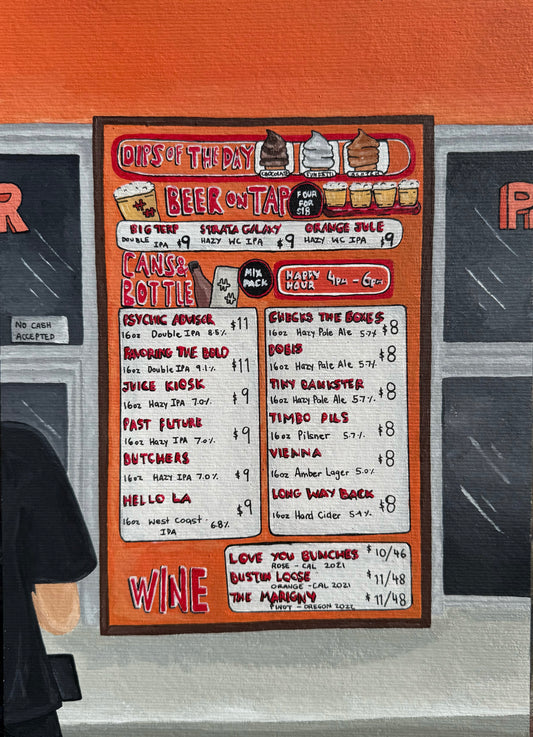 DIPS OF THE DAY
CHOCOLATE
CONFETTI
BEER ON TAP
FOUR FOR $18
BIG TERP
DOUBLE IPA $9
STRATA GALAXY
HAZY WC IPA $9
ORANGE JULE
HAZY WC IPA $9
CANS & BOTTLE
MIX PACK
HAPPY HOUR 4PM - 6PM
NO CASH
ACCEPTED
PSYCHIC ADVISOR $11
16oz Double IPA 8.5%
FAVORING THE BOLD $11
16oz Double IPA 9.1%
JUICE KIOSK $9
16oz Hazy IPA 7.0%
PAST FUTURE $9
16oz Hazy IPA 7.0%
BUTCHERS $9
16oz HAZY IPA 7.0%
HELLO LA $9
16oz West Coast IPA 6.8%
CHECKS THE BOXES $8
16oz Hazy Pale Ale 5.7%
DOBIS $8
16oz Hazy Pale Ale 5.7%
TINY BANKSTER $8
16oz Hazy Pale Ale 5.7%
TIMBO PILS $8
16oz Pilsner 5.7%
VIENNA $8
16oz Amber Lager 5.0%
LONG WAY BACK $8
16oz Hard Cider
WINE
LOVE YOU BUNCHES $10/46
ROSE - CAL 2021
BUSTIN LOOSE $11/48
ORANGE - CAL 2021
THE MARIGNY $11/48
PINOT - OREGON 2022
R
PA